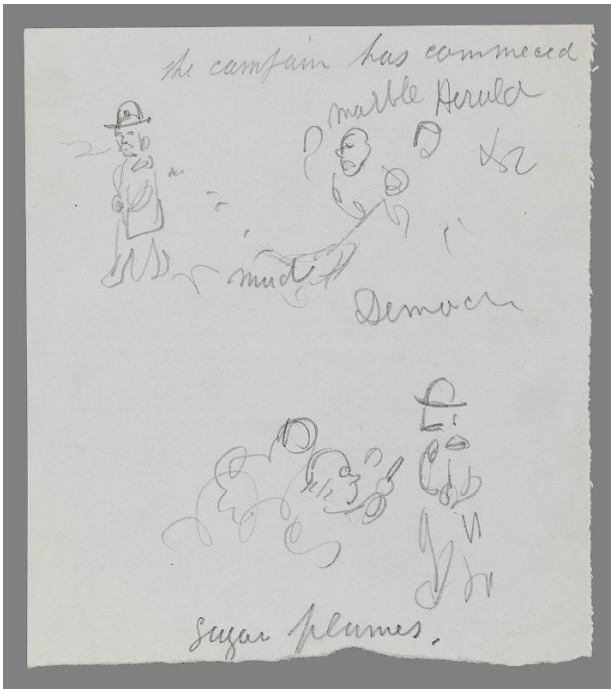 the campain has commeced
marble Herald
mud
Democ
Sugar plumes.